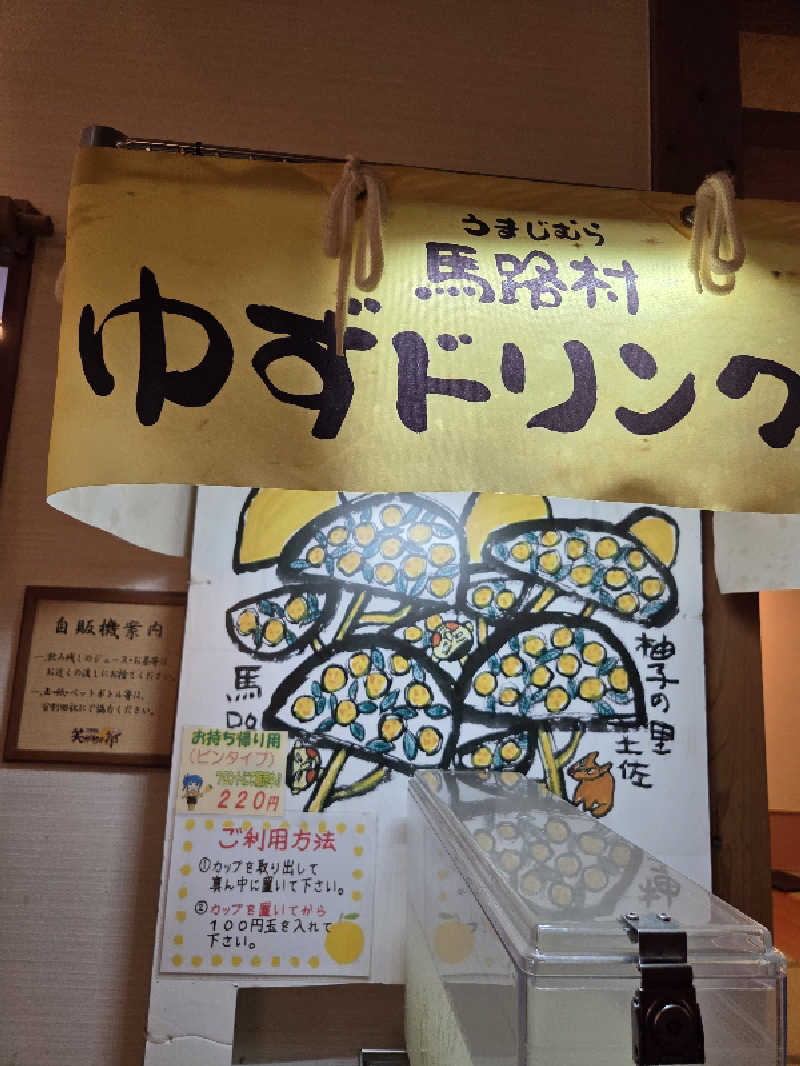 うまじむら
馬路村
ゆずドリンク
自販機案内
一、飲み残しのジュース・お茶等は、
お近くの流しにお捨てください。
一、缶・紙・ペットボトル等は、
分別回収にご協力ください。
柚子の里
土佐
馬
Do
お持ち帰り用
(ビンタイプ)
220円
ご利用方法
①カップを取り出して
真ん中に置いて下さい。
②カップを置いてから
100円玉を入れて
下さい。